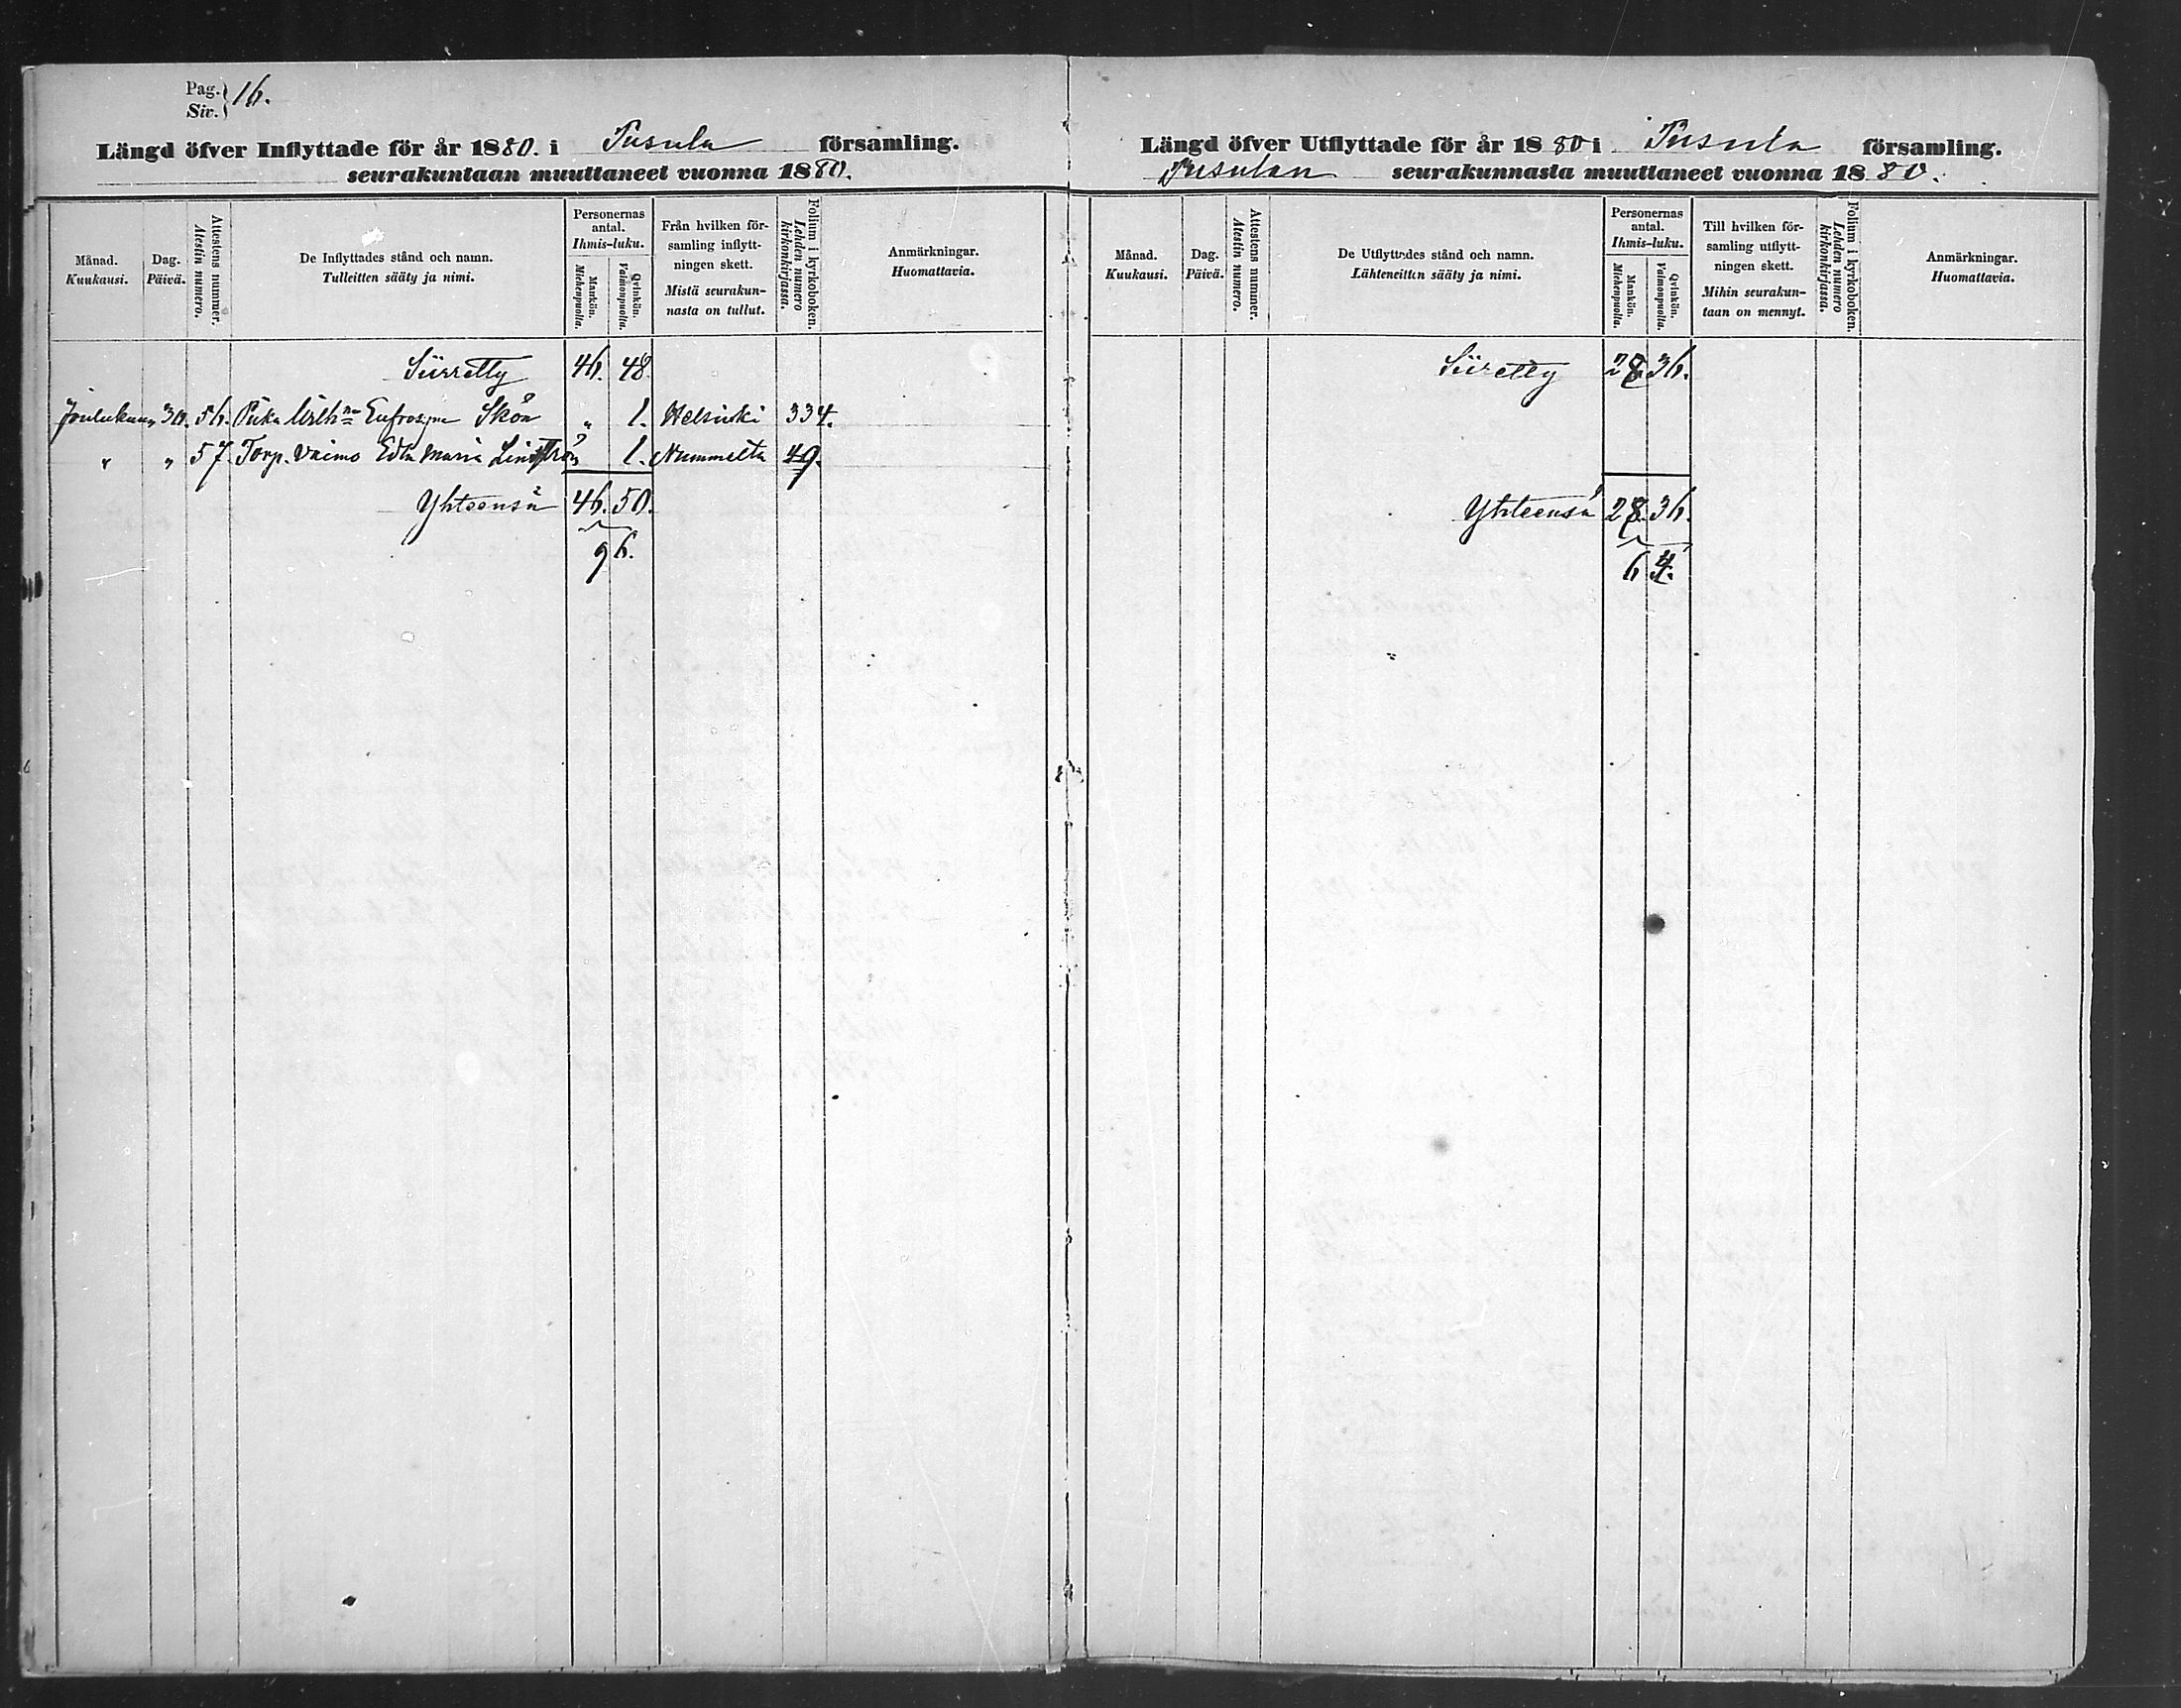 Pag. Siv. } 16.
Längd öfver Inflyttade för år 1880. i Pusula församling.
seurakuntaan muuttaneet vuonna 1880.
Månad. Kuukausi.
Dag. Päivä.
Attestens nummer. Atestin numero.
De Inflyttades stånd och namn. Tulleitten sääty ja nimi.
Personernas antal. Ihmis-luku.
Mankön. Miehenpuolia.
Qvinkön. Vaimonpuolia.
Från hvilken för-samling inflytt-ningen skett. Mistä seurakun-nasta on tullut.
Folium i kyrkoboken. Lehden numero kirkonkirjassa.
Anmärkningar. Huomattavia.
Siirretty 46. 48.
Joulukuun 30. 56. Piika Wilh:na Eufrosyne Skön " 1. Helsinki 334.
" " 57. Torp. Vaimo Edla Maria Lindström " 1. Nummelta 49.
Yhteensä 46. 50.
96.
Längd öfver Utflyttade för år 1880 i Pusula församling.
Pusulan seurakunnasta muuttaneet vuonna 1880.
Månad. Kuukausi.
Dag. Päivä.
Attestens nummer. Atestin numero.
De Utflyttades stånd och namn. Lähteneitten sääty ja nimi.
Personernas antal. Ihmis-luku.
Mankön. Miehenpuolia.
Qvinkön. Vaimonpuolia.
Till hvilken för-samling utflytt-ningen skett. Mihin seurakun-taan on mennyt.
Folium i kyrkoboken. Lehden numero kirkonkirjassa.
Anmärkningar. Huomattavia.
Siirretty 28 36.
Yhteensä 28. 36.
64.